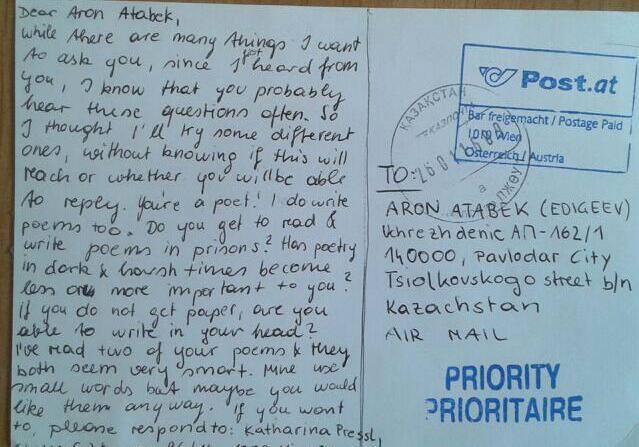 Dear Aron Atabek,
while there are many things I want
to ask you, since I just heard from
you, I know that you probably
hear these questions often. So
I thought I'll try some different
ones, without knowing if this will
reach or whether you will be able
to reply. You're a poet! I do write
poems too. Do you get to read &
write poems in prisons? Has poetry
in dark & harsh times become
less or more important to you?
If you do not get paper, are you
able to write in your head?
I've read two of your poems & they
both seem very smart. Mine use
small words but maybe you would
like them anyway. If you want
to, please respond to: Katharina Pressl,
Post.at
Bar freigemacht / Postage Paid
1010 Wien
Österreich / Austria
ҚАЗАҚСТАН
TO:
ARON ATABEK (EDIGEEV)
Uchrezhdenic АП-162/1
140000, Pavlodar City
Tsiolkovskogo street b/n
Kazachstan
AIR MAIL
PRIORITY
PRIORITAIRE